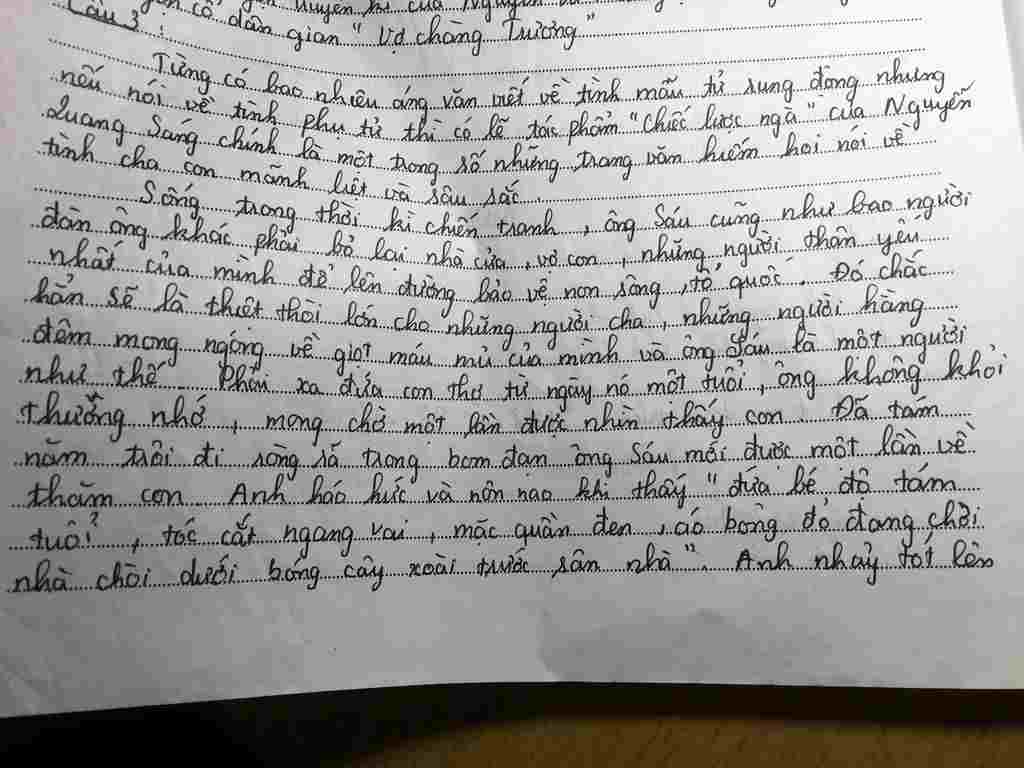 truyền kì của Nguyễn
dân gian "Vợ chàng Trương"
Câu 3:
Từng có bao nhiêu áng văn viết về tình mẫu tử rung động nhưng
nếu nói về tình phụ tử thì có lẽ tác phẩm "Chiếc lược ngà" của Nguyễn
Quang Sáng chính là một trong số những trang văn hiếm hoi nói về
tình cha con mãnh liệt và sâu sắc.
Sống trong thời kì chiến tranh, ông Sáu cũng như bao người
đàn ông khác phải bỏ lại nhà cửa, vợ con, những người thân yêu
nhất của mình để lên đường bảo vệ non sông, tổ quốc. Đó chắc
hẳn sẽ là thiệt thòi lớn cho những người cha, những người hàng
đêm mong ngóng về giọt máu mủ của mình và ông Sáu là một người
như thế. Phải xa đứa con thơ từ ngày nó một tuổi, ông không khỏi
thương nhớ, mong chờ một lần được nhìn thấy con. Đã tám
năm trôi đi ròng rã trong bom đạn ông Sáu mới được một lần về
thăm con. Anh háo hức và nôn nao khi thấy "đứa bé độ tám
tuổi, tóc cắt ngang vai, mặc quần đen, áo bông đỏ đang chơi
nhà chòi dưới bóng cây xoài trước sân nhà". Anh nhảy tót lên